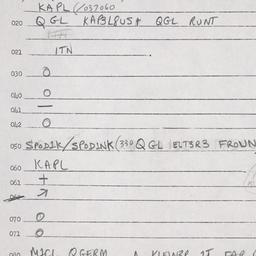 KAPL (/037060
020 QGL KAP3L8US+ QGL RUNT
021 ITN
030 O
040 O
041 —
042 O
050 SPOD1K/SPOD1NK(330QGL ELT3R3 FROWN
060 KAPL
061 +
↗
070 O
071 O
M2CL QGERM